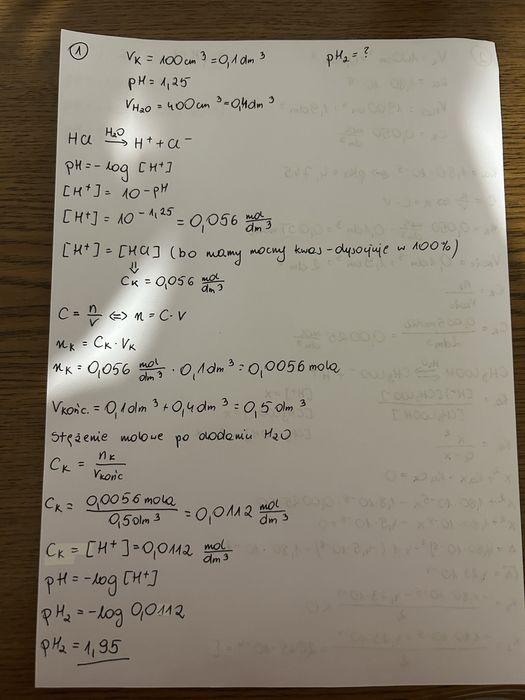 ①
V_K = 100 cm³ = 0,1 dm³ pH₂ = ?
pH = 1,25
V_H₂O = 400 cm³ = 0,4 dm³
HCl —H₂O→ H⁺ + Cl⁻
pH = -log [H⁺]
[H⁺] = 10^-pH
[H⁺] = 10^-1,25 = 0,056 mol/dm³
[H⁺] = [HCl] (bo mamy mocny kwas - dysocjuje w 100%)
⇓
C_K = 0,056 mol/dm³
C = n/V ⇔ n = C · V
n_K = C_K · V_K
n_K = 0,056 mol/dm³ · 0,1 dm³ = 0,0056 mola
V_końc. = 0,1 dm³ + 0,4 dm³ = 0,5 dm³
Stężenie molowe po dodaniu H₂O
C_K = n_K/V_końc
C_K = 0,0056 mola/0,5 dm³ = 0,0112 mol/dm³
C_K = [H⁺] = 0,0112 mol/dm³
pH = -log [H⁺]
pH₂ = -log 0,0112
pH₂ = 1,95